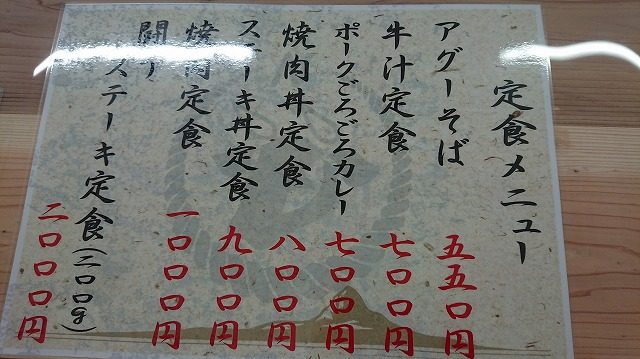 定食メニュー
アグーそば 五五〇円
牛汁定食 七〇〇円
ポークごろごろカレー 七〇〇円
焼肉丼定食 八〇〇円
ステーキ丼定食 九〇〇円
焼肉定食 一〇〇〇円
闘牛
ステーキ定食(二〇〇g) 二〇〇〇円